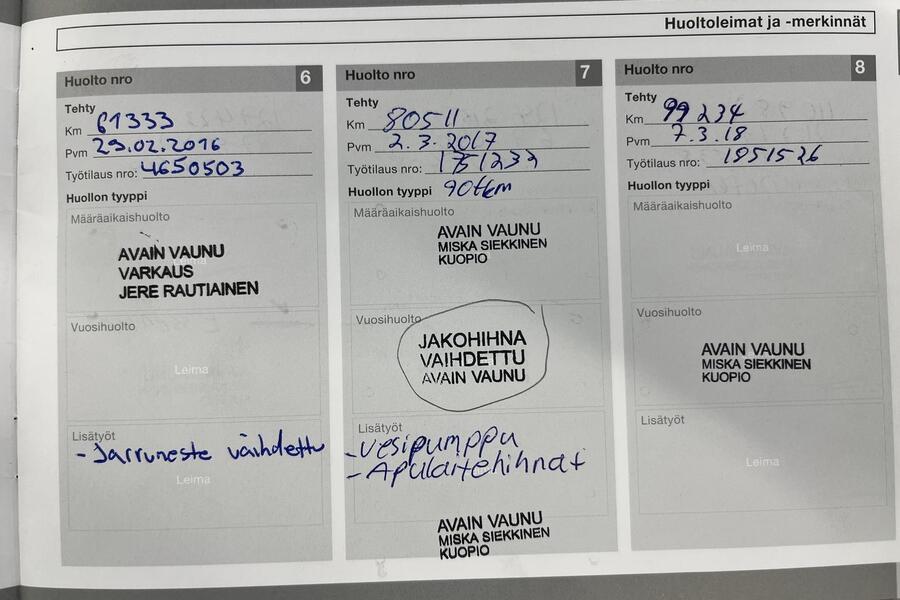 Huoltoleimat ja -merkinnät
Huolto nro 6
Tehty
Km 61333
Pvm 29.02.2016
Työtilaus nro: 4650503
Huollon tyyppi
Määräaikaishuolto
AVAIN VAUNU
VARKAUS
JERE RAUTIAINEN
Vuosihuolto
Leima
Lisätyöt
- Jarruneste vaihdettu
Leima
Huolto nro 7
Tehty
Km 80511
Pvm 2.3.2017
Työtilaus nro: 1751233
Huollon tyyppi 90tkm
Määräaikaishuolto
AVAIN VAUNU
MISKA SIEKKINEN
KUOPIO
Vuosihuolto
JAKOHIHNA
VAIHDETTU
AVAIN VAUNU
Lisätyöt
- Vesipumppu
- Apulaitehihnat
AVAIN VAUNU
MISKA SIEKKINEN
KUOPIO
Huolto nro 8
Tehty
Km 99234
Pvm 7.3.18
Työtilaus nro: 1851526
Huollon tyyppi
Määräaikaishuolto
Leima
Vuosihuolto
AVAIN VAUNU
MISKA SIEKKINEN
KUOPIO
Lisätyöt
Leima